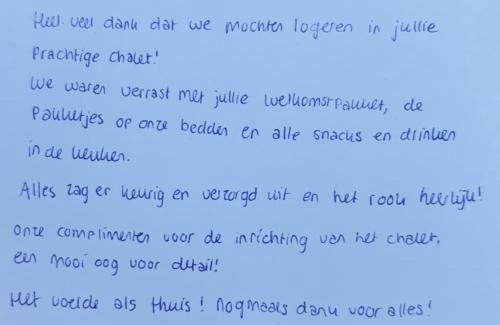 Heel veel dank dat we mochten logeren in jullie
prachtige chalet!
We waren verrast met jullie welkomstpakket, de
pakketjes op onze bedden en alle snacks en drinken
in de keuken.
Alles zag er keurig en verzorgd uit en het rook heerlijk!
onze complimenten voor de inrichting van het chalet,
een mooi oog voor detail!
Het voelde als thuis! nogmaals dank voor alles!